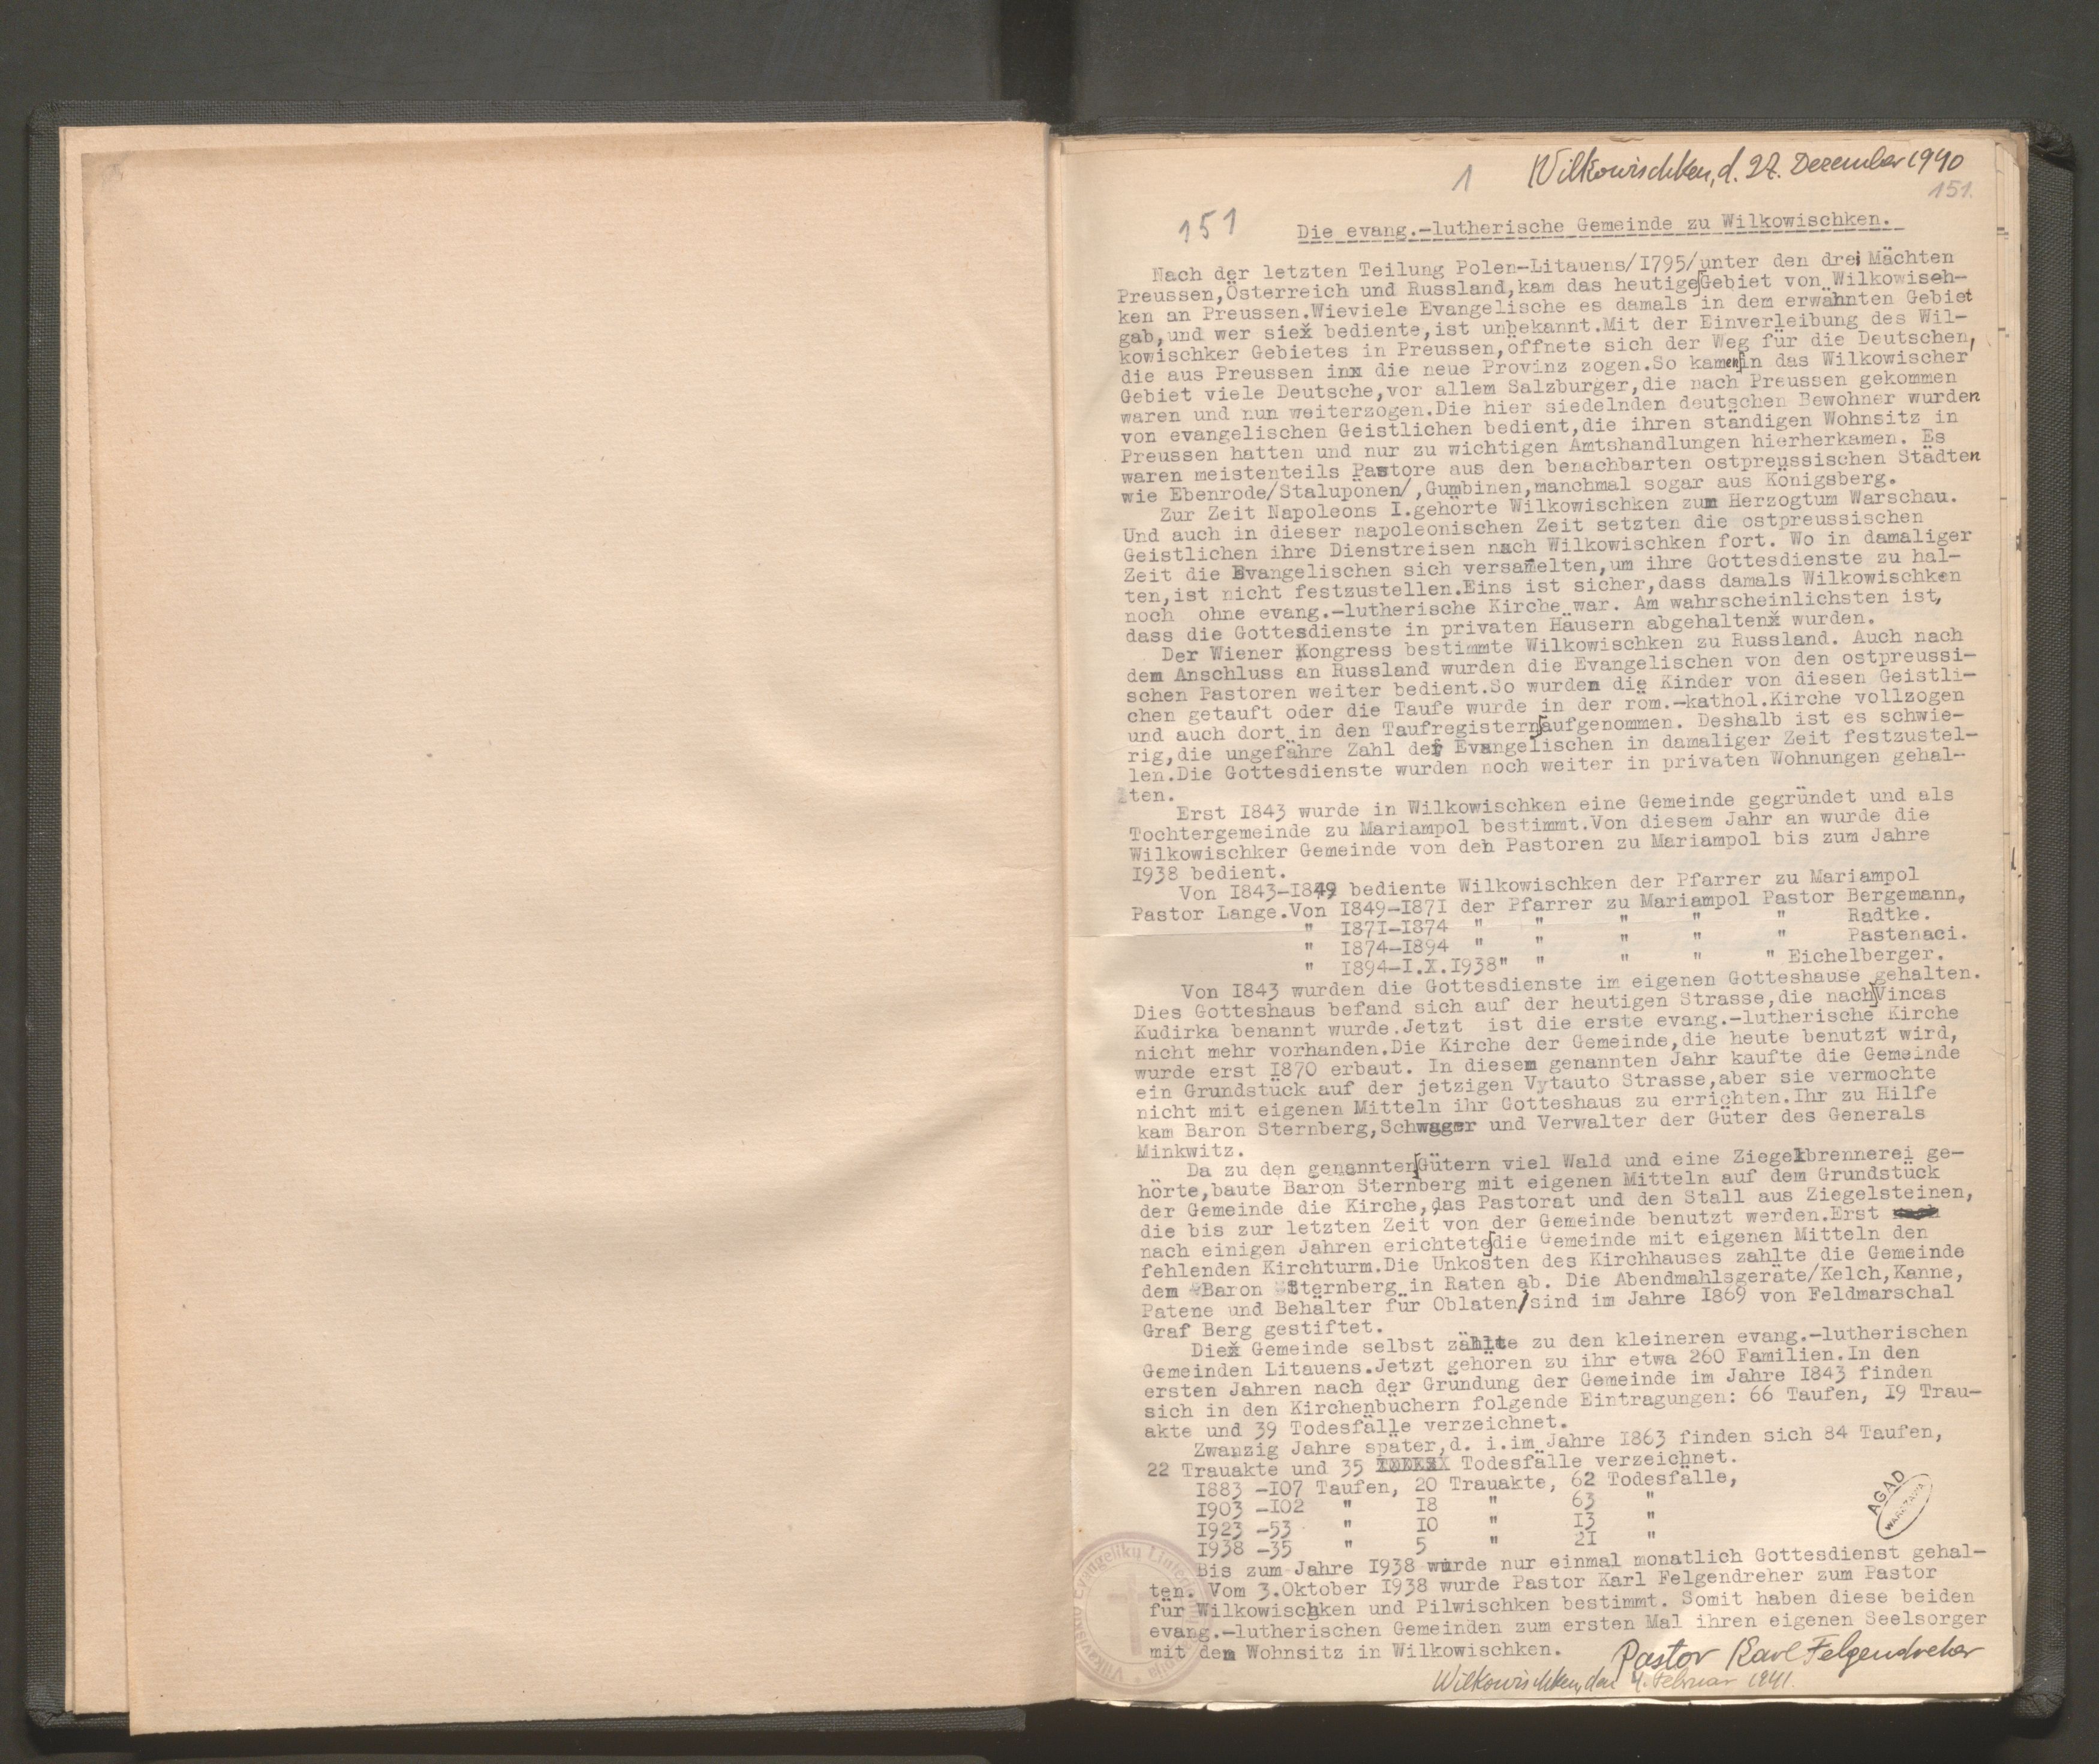 1
Wilkowischken, d. 27. Dezember 1940
151.
151
Die evang.-lutherische Gemeinde zu Wilkowischken.
Nach der letzten Teilung Polen-Litauens/1795/unter den drei Mächten
Preussen,Österreich und Russland,kam das heutige Gebiet von Wilkowisch-
ken an Preussen.Wieviele Evangelische es damals in dem erwähnten Gebiet
gab,und wer sie bediente,ist unbekannt.Mit der Einverleibung des Wil-
kowischker Gebietes in Preussen,öffnete sich der Weg für die Deutschen,
die aus Preussen in die neue Provinz zogen.So kamen in das Wilkowischer
Gebiet viele Deutsche,vor allem Salzburger,die nach Preussen gekommen
waren und nun weiterzogen.Die hier siedelnden deutschen Bewohner wurden
von evangelischen Geistlichen bedient,die ihren ständigen Wohnsitz in
Preussen hatten und nur zu wichtigen Amtshandlungen hierherkamen. Es
waren meistenteils Pastore aus den benachbarten ostpreussischen Städten
wie Ebenrode/Staluponen/,Gumbinen,manchmal sogar aus Königsberg.
Zur Zeit Napoleons I.gehörte Wilkowischken zum Herzogtum Warschau.
Und auch in dieser napoleonischen Zeit setzten die ostpreussischen
Geistlichen ihre Dienstreisen nach Wilkowischken fort. Wo in damaliger
Zeit die Evangelischen sich versam̄elten,um ihre Gottesdienste zu hal-
ten,ist nicht festzustellen.Eins ist sicher,dass damals Wilkowischken
noch ohne evang.-lutherische Kirche war. Am wahrscheinlichsten ist,
dass die Gottesdienste in privaten Häusern abgehalten wurden.
Der Wiener Kongress bestimmte Wilkowischken zu Russland. Auch nach
dem Anschluss an Russland wurden die Evangelischen von den ostpreussi-
schen Pastoren weiter bedient.So wurden die Kinder von diesen Geistli-
chen getauft oder die Taufe wurde in der röm.-kathol.Kirche vollzogen
und auch dort in den Taufregistern aufgenommen. Deshalb ist es schwie-
rig,die ungefähre Zahl der Evangelischen in damaliger Zeit festzustel-
len.Die Gottesdienste wurden noch weiter in privaten Wohnungen gehal-
ten.
Erst 1843 wurde in Wilkowischken eine Gemeinde gegründet und als
Tochtergemeinde zu Mariampol bestimmt.Von diesem Jahr an wurde die
Wilkowischker Gemeinde von den Pastoren zu Mariampol bis zum Jahre
1938 bedient.
Von 1843-1849 bediente Wilkowischken der Pfarrer zu Mariampol
Pastor Lange.Von 1849-1871 der Pfarrer zu Mariampol Pastor Bergemann,
" 1871-1874 " " " " " Radtke.
" 1874-1894 " " " " " Pastenaci.
" 1894-I.X.1938" " " " " Eichelberger.
Von 1843 wurden die Gottesdienste im eigenen Gotteshause gehalten.
Dies Gotteshaus befand sich auf der heutigen Strasse,die nach Vincas
Kudirka benannt wurde.Jetzt ist die erste evang.-lutherische Kirche
nicht mehr vorhanden.Die Kirche der Gemeinde,die heute benutzt wird,
wurde erst 1870 erbaut. In diesem genannten Jahr kaufte die Gemeinde
ein Grundstück auf der jetzigen Vytauto Strasse,aber sie vermochte
nicht mit eigenen Mitteln ihr Gotteshaus zu errichten.Ihr zu Hilfe
kam Baron Sternberg,Schwager und Verwalter der Güter des Generals
Minkwitz.
Da zu den genannten Gütern viel Wald und eine Ziegelbrennerei ge-
hörte,baute Baron Sternberg mit eigenen Mitteln auf dem Grundstück
der Gemeinde die Kirche,das Pastorat und den Stall aus Ziegelsteinen,
die bis zur letzten Zeit von der Gemeinde benutzt werden.Erst
nach einigen Jahren erichtete die Gemeinde mit eigenen Mitteln den
fehlenden Kirchturm.Die Unkosten des Kirchhauses zahlte die Gemeinde
dem Baron Sternberg in Raten ab. Die Abendmahlsgeräte/Kelch,Kanne,
Patene und Behälter für Oblaten/sind im Jahre 1869 von Feldmarschal
Graf Berg gestiftet.
Die Gemeinde selbst zählte zu den kleineren evang.-lutherischen
Gemeinden Litauens.Jetzt gehören zu ihr etwa 260 Familien.In den
ersten Jahren nach der Gründung der Gemeinde im Jahre 1843 finden
sich in den Kirchenbüchern folgende Eintragungen: 66 Taufen, 19 Trau-
akte und 39 Todesfälle verzeichnet.
Zwanzig Jahre später,d. i.im Jahre 1863 finden sich 84 Taufen,
22 Trauakte und 35 Todesfälle verzeichnet.
1883 -107 Taufen, 20 Trauakte, 62 Todesfälle,
1903 -102 " 18 " 63 "
1923 -53 " 10 " 13 "
1938 -35 " 5 " 21 "
AGAD
WARSZAWA
Bis zum Jahre 1938 wurde nur einmal monatlich Gottesdienst gehal-
ten. Vom 3.Oktober 1938 wurde Pastor Karl Felgendreher zum Pastor
für Wilkowischken und Pilwischken bestimmt. Somit haben diese beiden
evang.-lutherischen Gemeinden zum ersten Mal ihren eigenen Seelsorger
mit dem Wohnsitz in Wilkowischken.
Pastor Karl Felgendreher
Wilkowischken, den 4. Februar 1941.